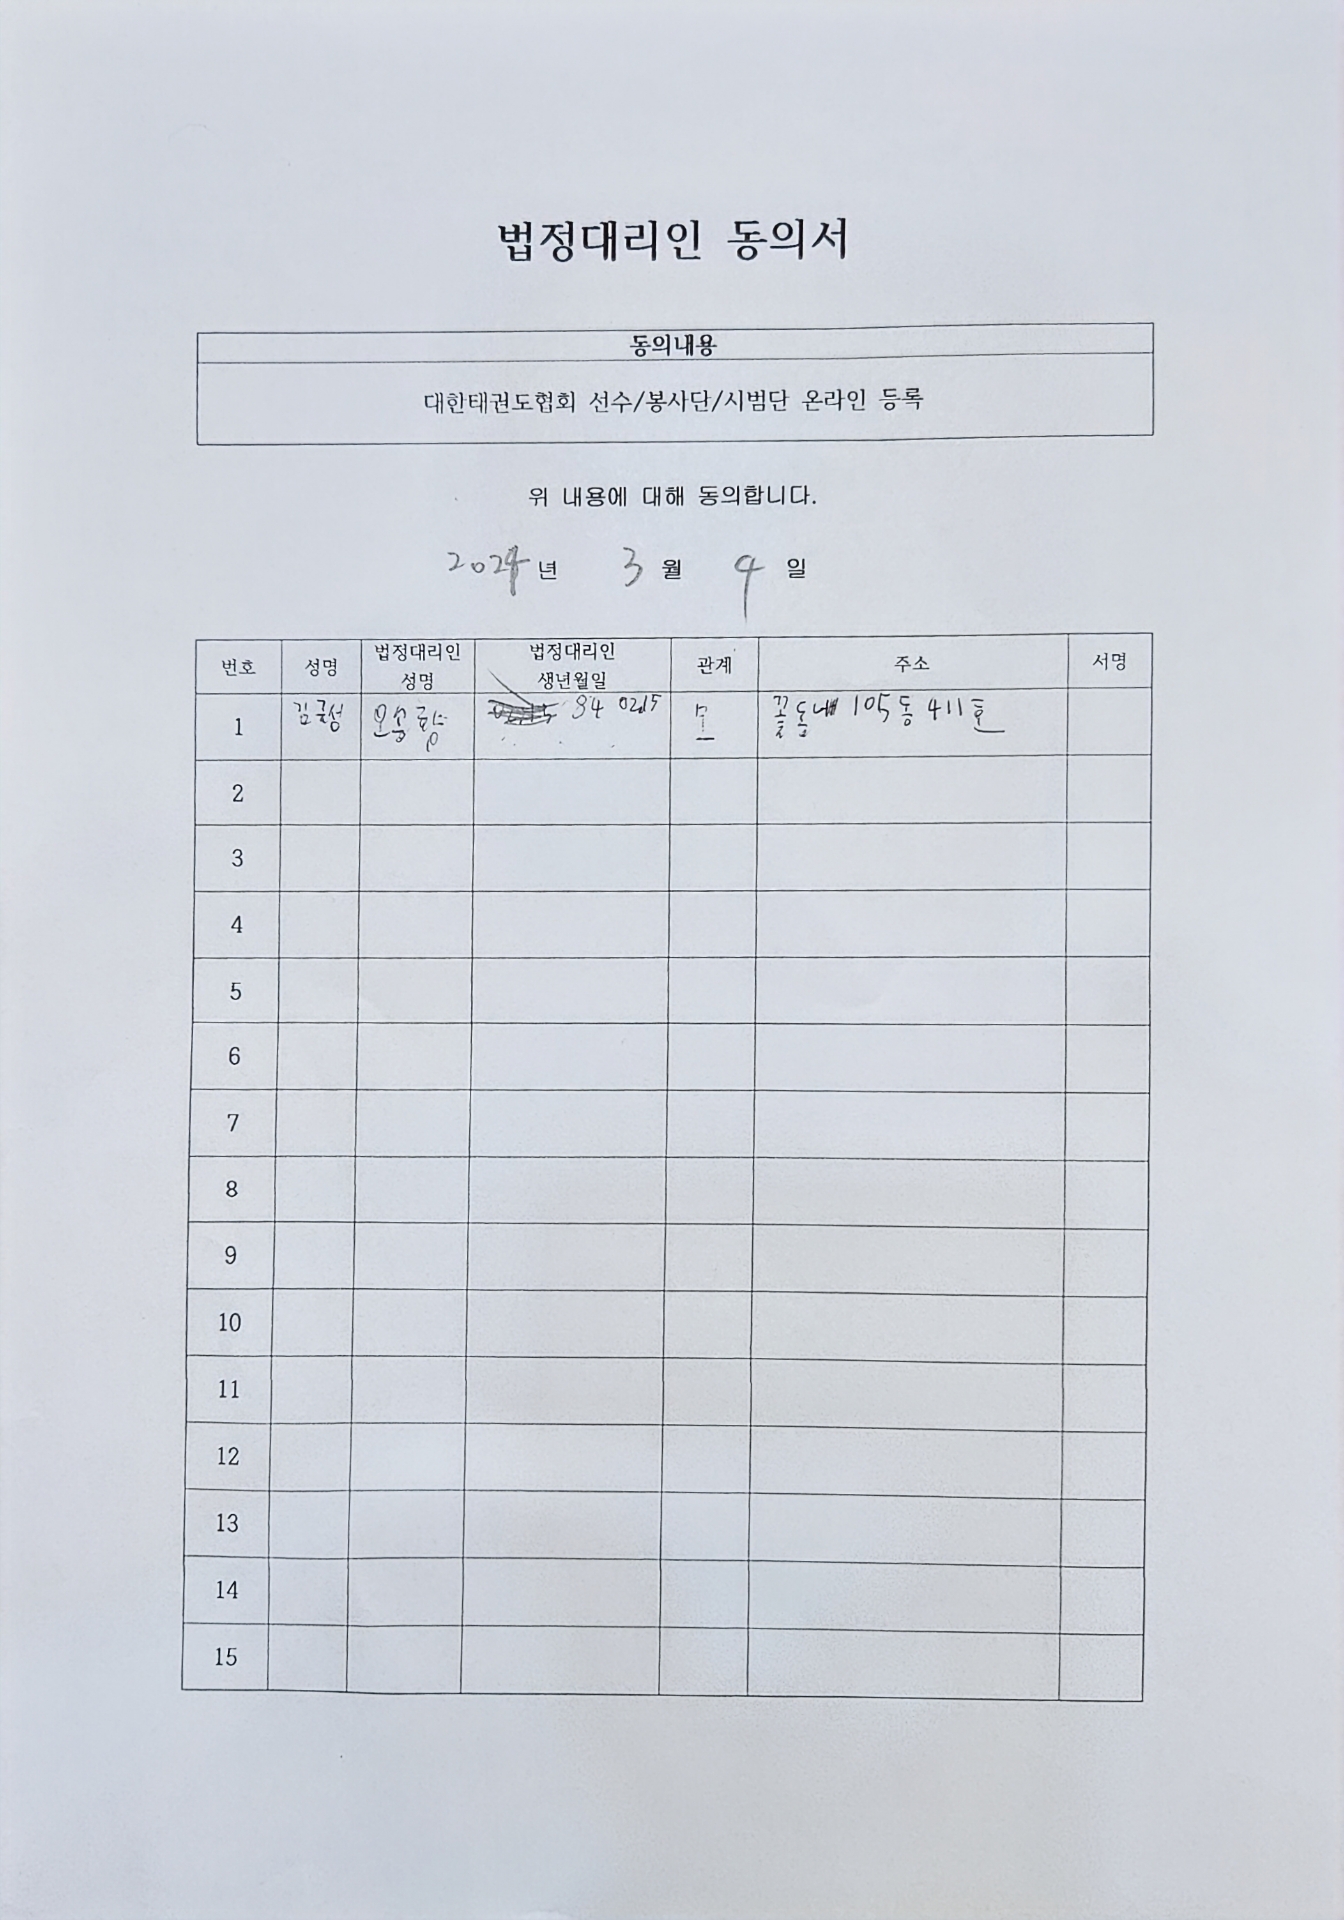 법정대리인 동의서
동의내용
대한태권도협회 선수/봉사단/시범단 온라인 등록
위 내용에 대해 동의합니다.
2024년 3월 4일
번호 성명 법정대리인 성명 법정대리인 생년월일 관계 주소 서명
1 84 0215 모 꽃동네 105동 411호
2
3
4
5
6
7
8
9
10
11
12
13
14
15